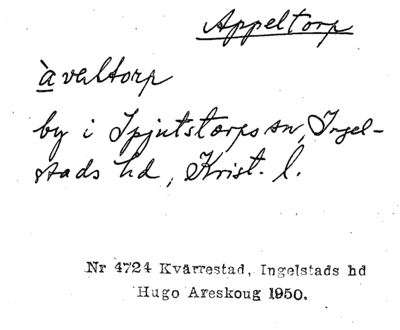 Appeltorp
àvaltorp
by i Spjutstorps sn, Ingel-
stads hd, Krist. l.
Nr 4724 Kvärrestad, Ingelstads hd
Hugo Areskoug 1950.